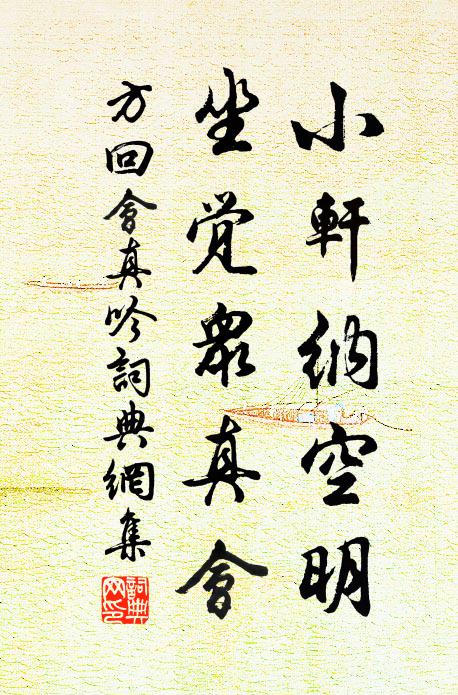 小軒納空明
坐覺眾真會
方回會真吟詞典網集
詞典网印